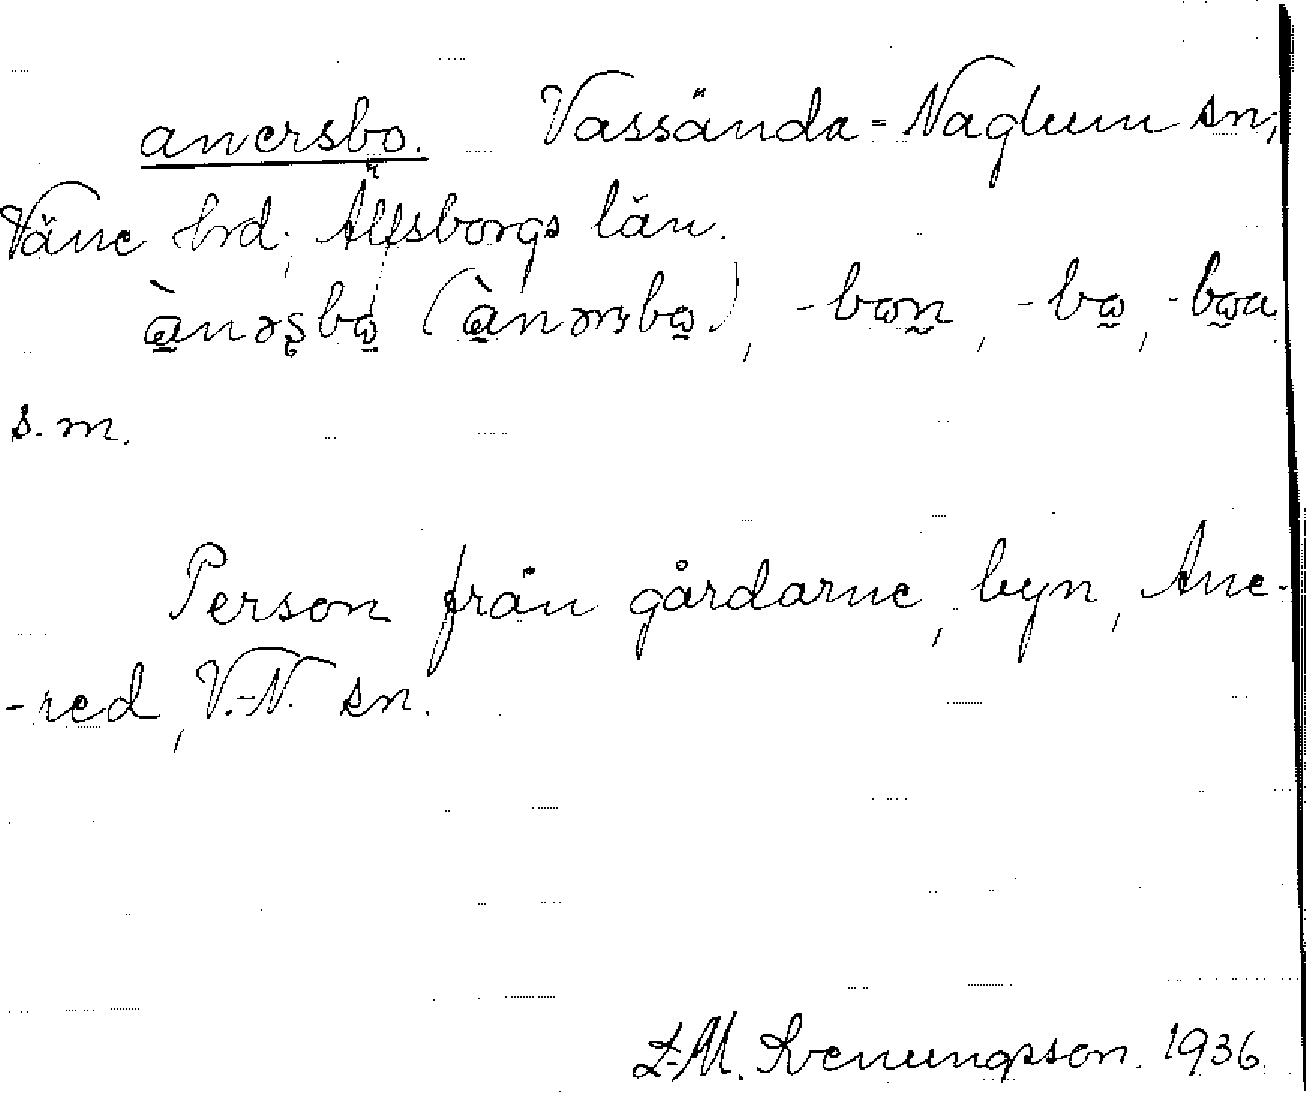 anersbo. Vassända-Naglum sn,
Väne hrd, Älfsborgs län.
à̱nəʂbω̱ (à̱nərsbω̱), -bωṉ, -bω̱, -bω̱a
s. m.
Person från gårdarne, byn, Ane-
-red, V.-N. sn.
L-M. Svenungsson. 1936.